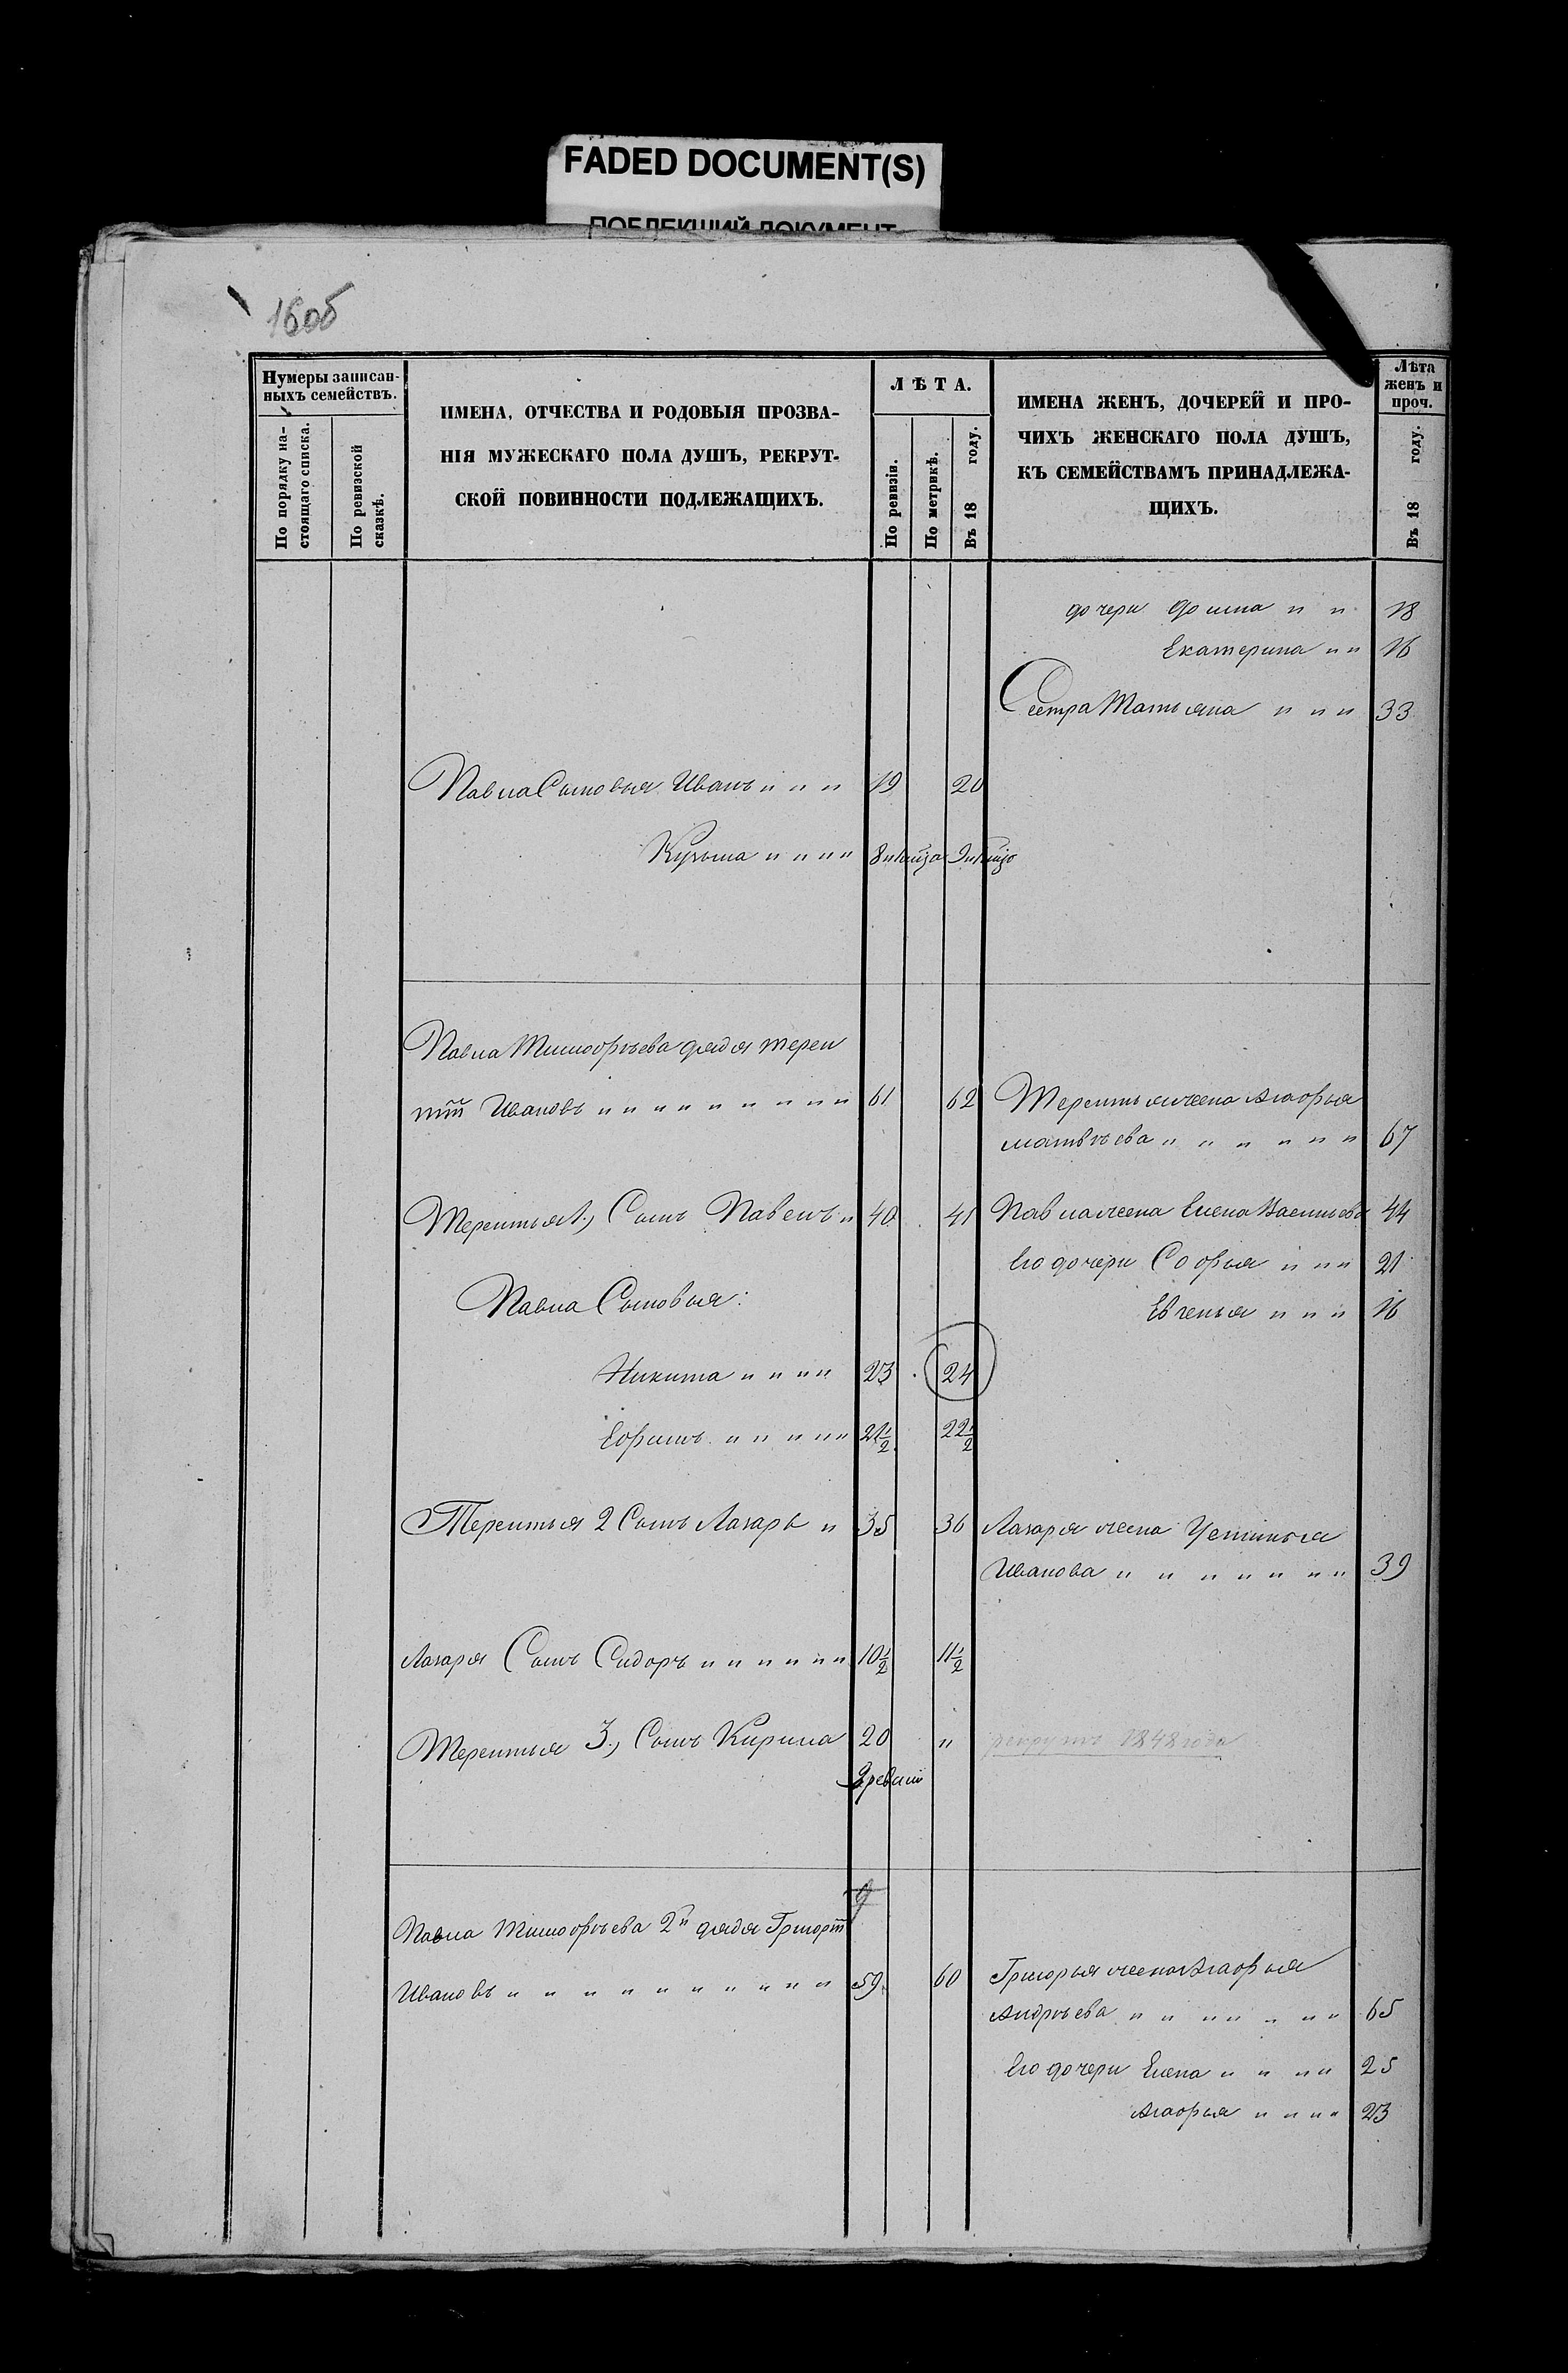 FADED DOCUMENT(S)
ПОБЛЕКШИЙ ДОКУМЕНТ
16об
Нумеры записан-
ныхъ семействъ.
По порядку на-
стоящаго списка.
По ревизской
сказкѣ.
ИМЕНА, ОТЧЕСТВА И РОДОВЫЯ ПРОЗВА-
НІЯ МУЖЕСКАГО ПОЛА ДУШЪ, РЕКРУТ-
СКОЙ ПОВИННОСТИ ПОДЛЕЖАЩИХЪ.
ЛѢТА.
По ревизіи.
По метрикѣ.
Въ 18 году.
ИМЕНА ЖЕНЪ, ДОЧЕРЕЙ И ПРО-
ЧИХЪ ЖЕНСКАГО ПОЛА ДУШЪ,
КЪ СЕМЕЙСТВАМЪ ПРИНАДЛЕЖА-
ЩИХЪ.
Лѣта
женъ и
проч.
Въ 18 году.
дочери Домна " " 18
Екатерина " " 16
Сестра Татьяна " " " 33
Павла Сыновья Иванъ " " " 19 20
Кузьма " " " " 8
Павла Тимофѣева дядя Терен
тій Ивановъ " " " " " " " " " " 61 62 Терентья жена Агафья
Матвѣева " " " " " " 67
Терентья 1., Сынъ Павелъ " 40 41 Павла жена Елена Васильева 44
Его дочери Софья " " " 21
Павла Сыновья: Евгенья " " " 16
Никита " " " " 23 24
Ефимъ " " " " " 21½ 22½
Терентья 2 Сынъ Лазарь " 35 36 Лазаря жена Устинья
Иванова " " " " " " " 39
Лазаря Сынъ Сидоръ " " " " " " " 10½ 11½
Терентья 3., Сынъ Кирила 20 " рекрутъ 1848 года
Павла Тимофѣева 2й дядя Григорій
Ивановъ " " " " " " " " " " 59 60 Григорья жена Агафья
Андрѣева " " " " " " " 65
Его дочери Елена " " " " 25
Агафья " " " " 23